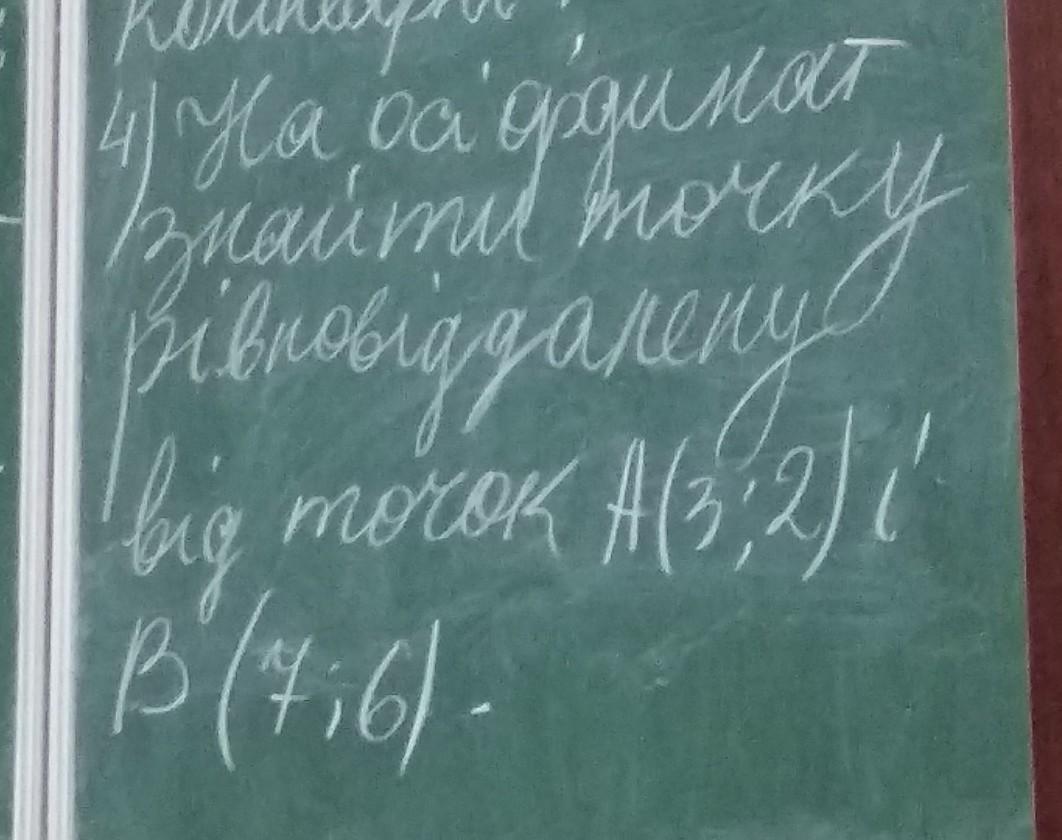 4) На осі ординат
знайти точку
рівновіддалену
від точок A(3;2) і
B (7;6).